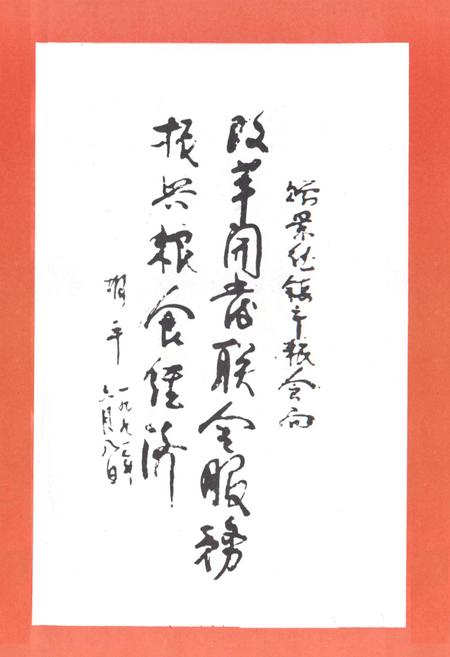 赠景德镇市粮食局
改革开发联合服務
振兴粮食经济
胡平
一九九一年
六月八日